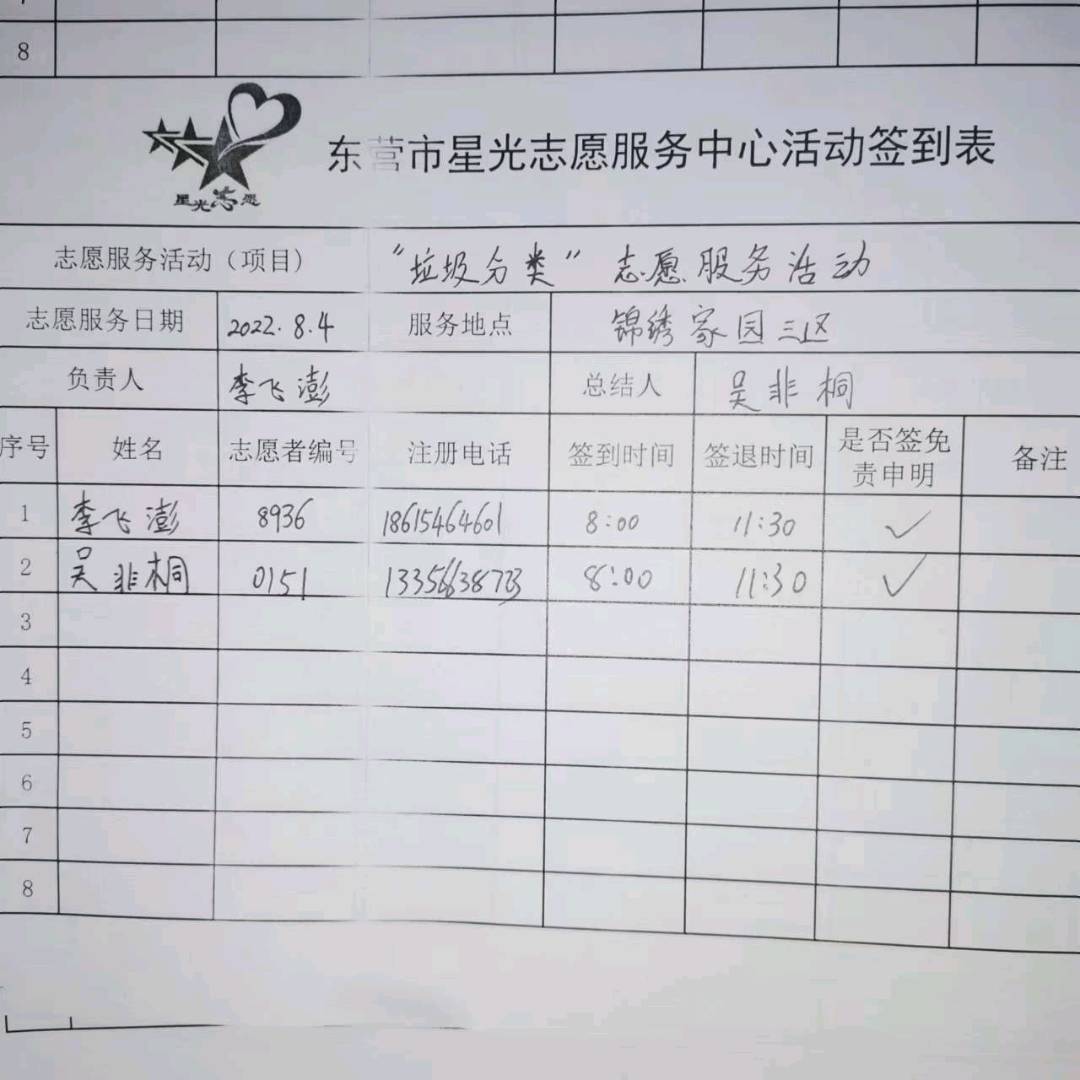 8
星光志愿
东营市星光志愿服务中心活动签到表
志愿服务活动（项目） “垃圾分类”志愿服务活动
志愿服务日期 2022.8.4 服务地点 锦绣家园三区
负责人 李飞澎 总结人 吴非桐
序号 姓名 志愿者编号 注册电话 签到时间 签退时间 是否签免责申明 备注
1 李飞澎 8936 18615464601 8:00 11:30 ✓
2 吴非桐 0151 8:00 11:30 ✓
3
4
5
6
7
8